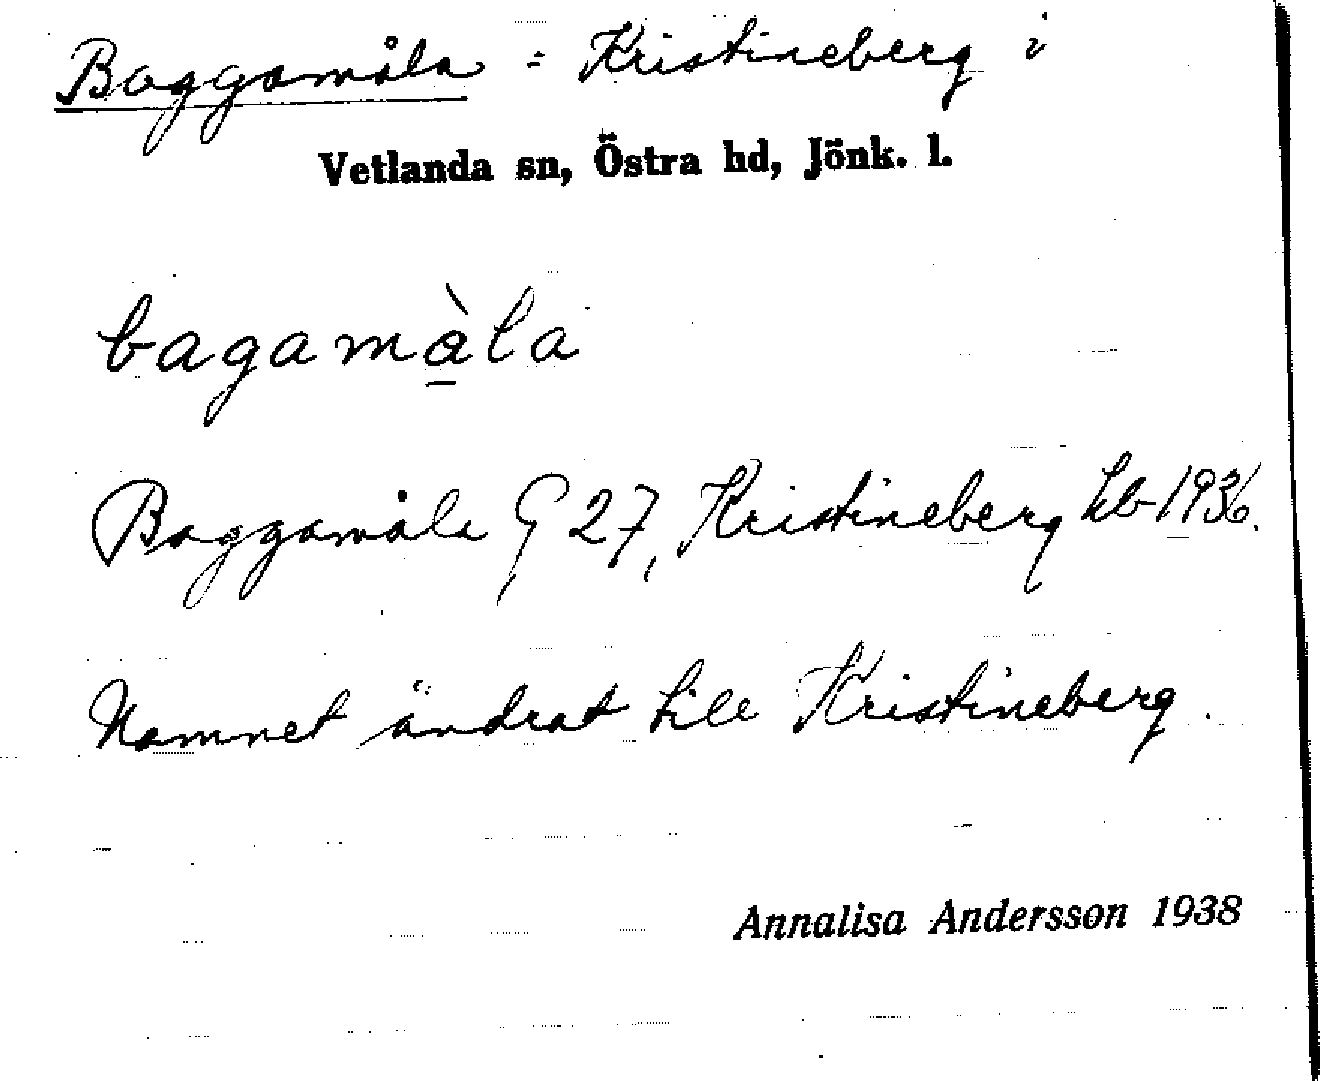 Baggamåla = Kristineberg i
Vetlanda sn, Östra hd, Jönk. l.
bagamà̱la
Baggamåla G 27, Kristineberg hb 1936.
Namnet ändrat till Kristineberg.
Annalisa Andersson 1938